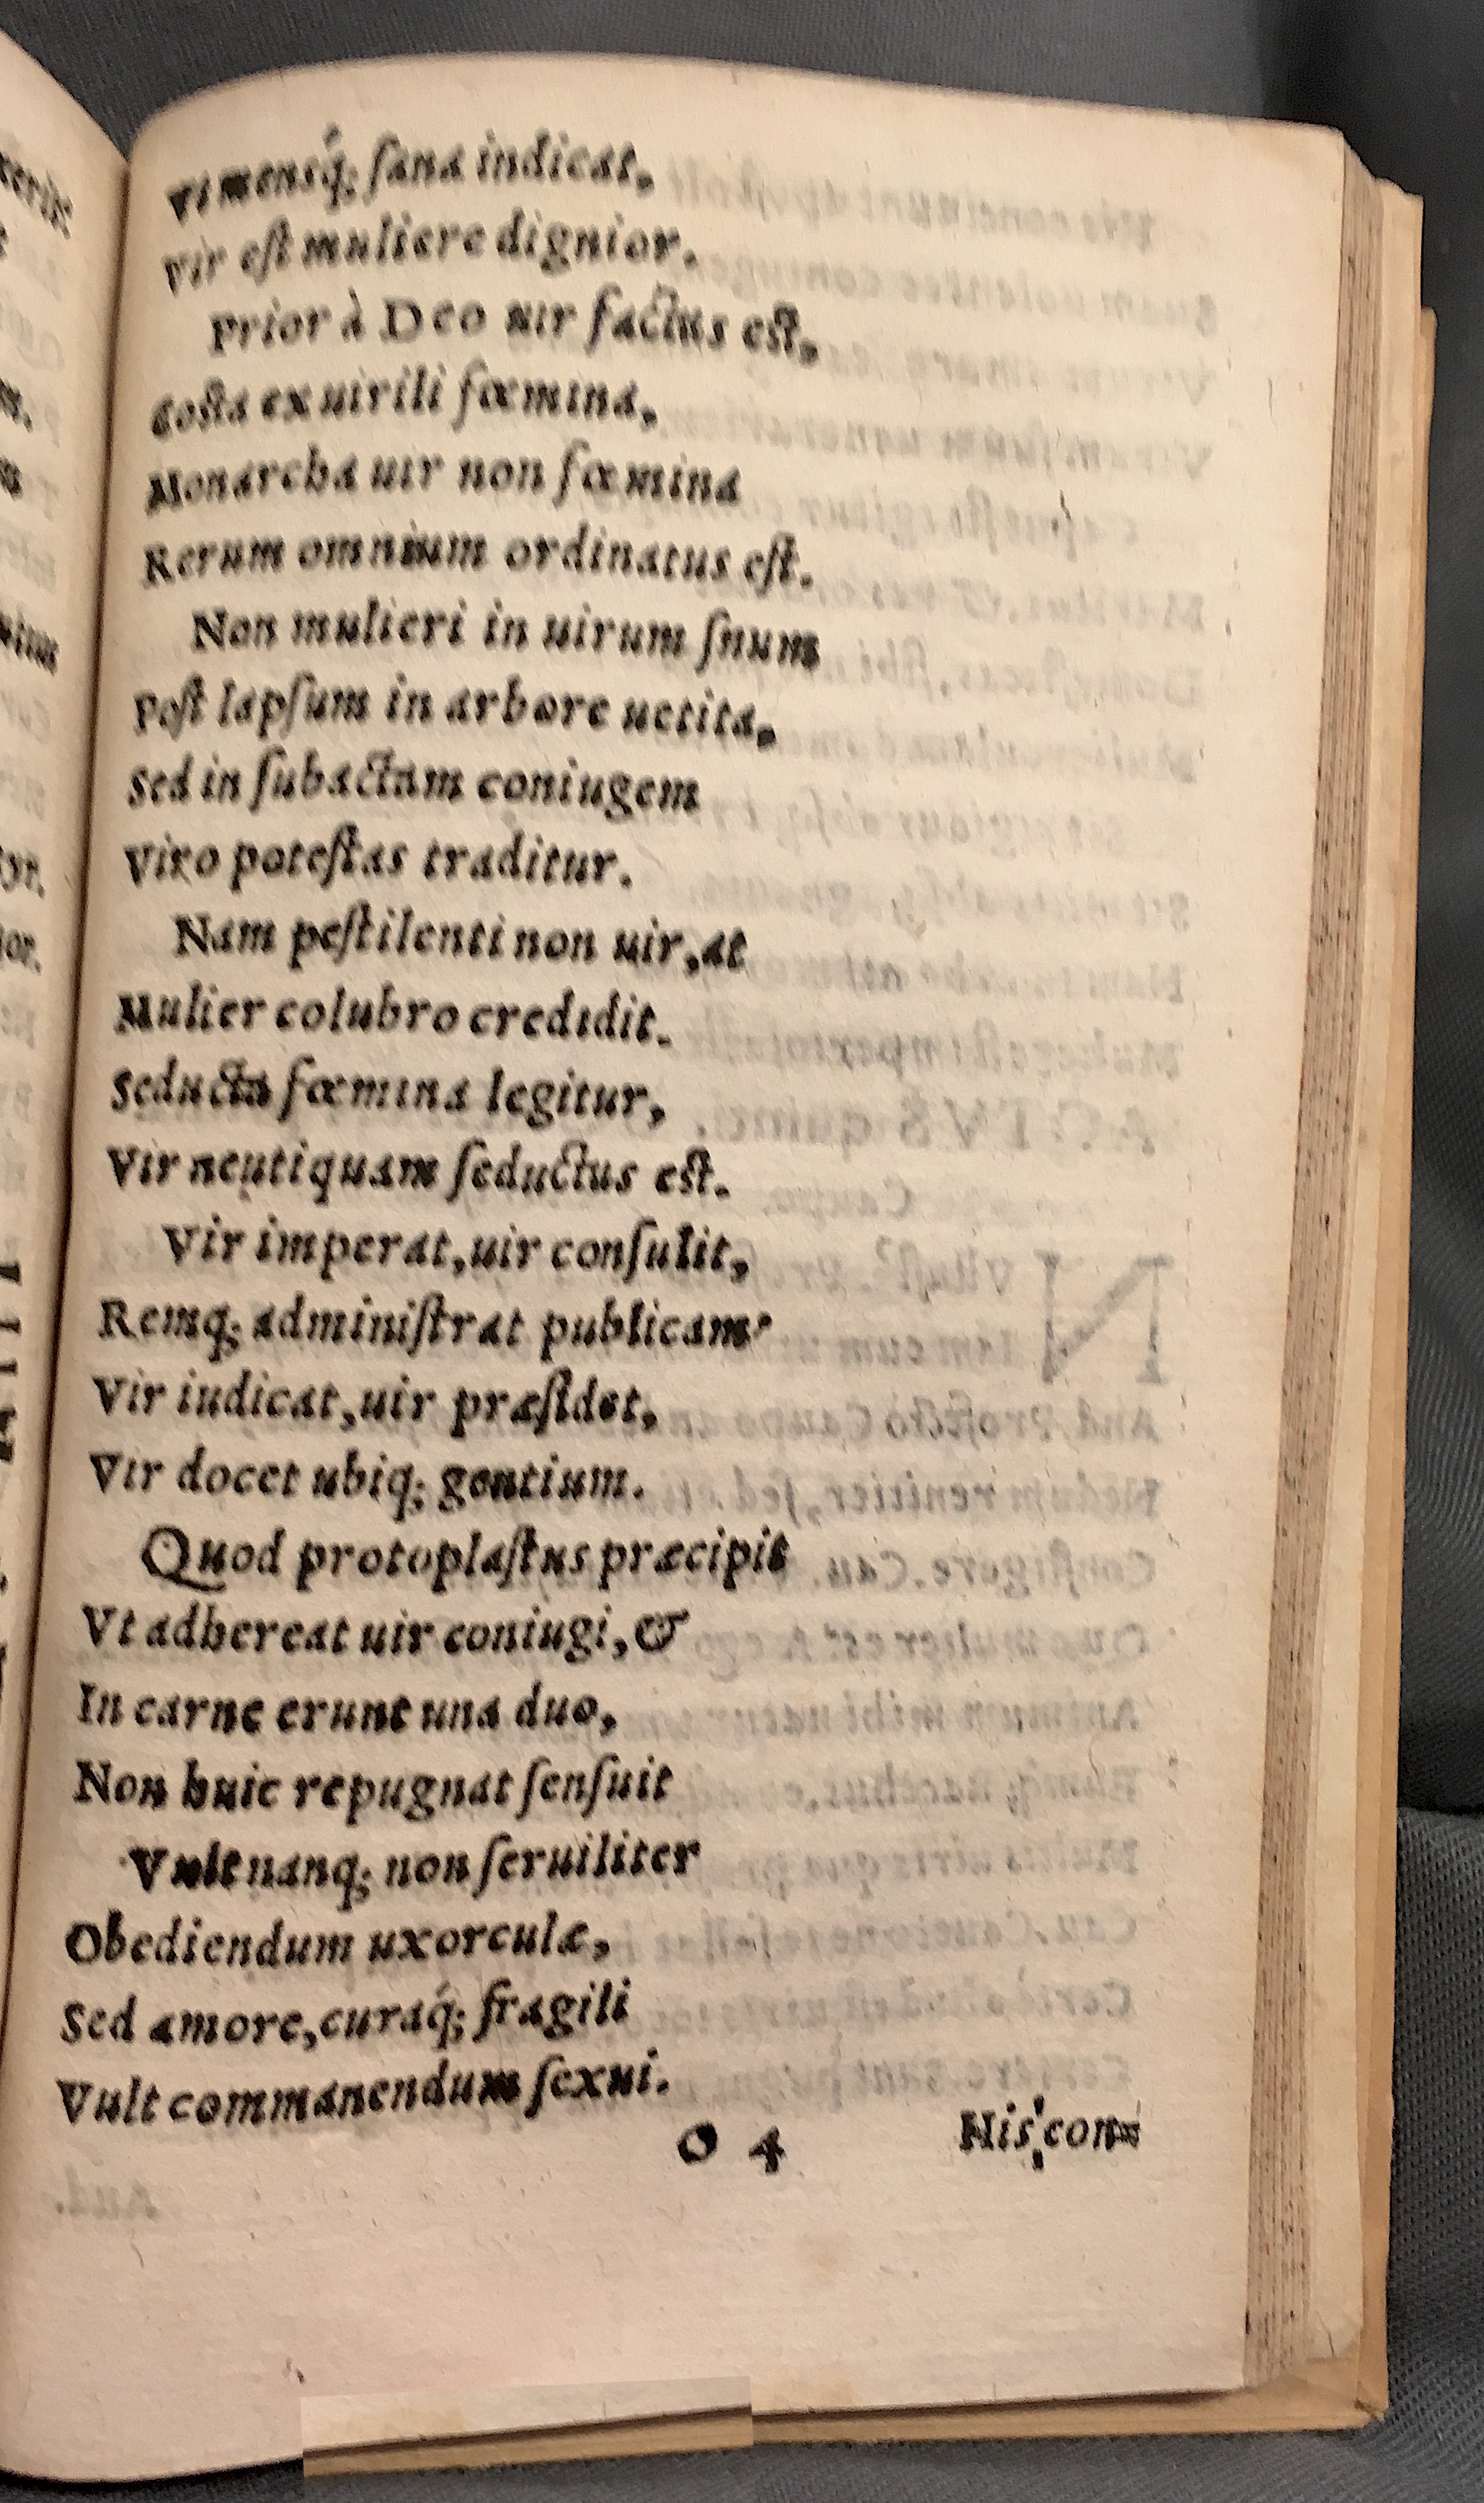 Vt mensq́; ſana indicat,
Vir eſt muliere dignior.
Prior à Deo uir factus eſt,
Coſta ex uirili fœmina,
Monarcha uir non fœmina
Rerum omnium ordinatus eſt.
Non mulieri in uirum ſnum
Poſt lapſum in arbore uetita,
Sed in ſubactam coniugem
Viro poteſtas traditur.
Nam peſtilenti non uir, at
Mulier colubro credidit.
Seducta fœmina legitur,
Vir neutiquam ſeductus eſt.
Vir imperat, uir conſulit,
Remq; adminiſtrat publicam
Vir iudicat, uir præſidet,
Vir docet ubiq; gentium.
Quod protoplaſtus præcipit
Vt adhereat uir coniugi, &
In carne erunt una duo,
Non huic repugnat ſenſuit
Vult nanq; non ſeruiliter
Obediendum uxorculæ,
Sed amore, curaq́; fragili
Vult commanendum ſexui.
O 4 His con=